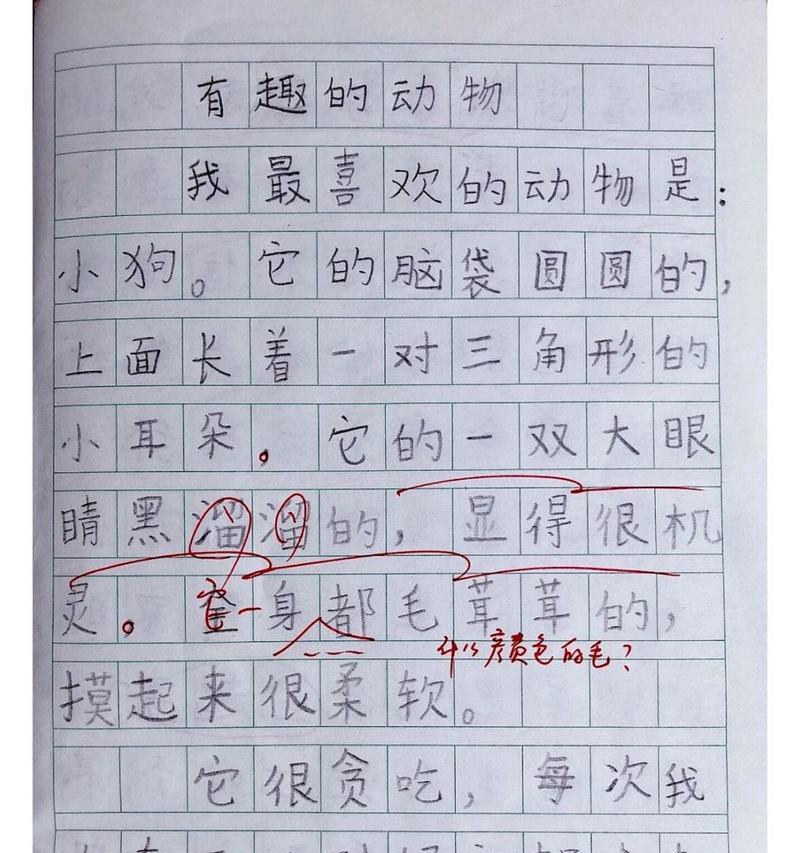 有趣的动物
我最喜欢的动物是：
小狗。它的脑袋圆圆的，
上面长着一对三角形的
小耳朵。它的一双大眼
睛黑溜溜的，显得很机
灵。一身都毛茸茸的，
什么颜色的毛？
摸起来很柔软。
它很贪吃，每次我